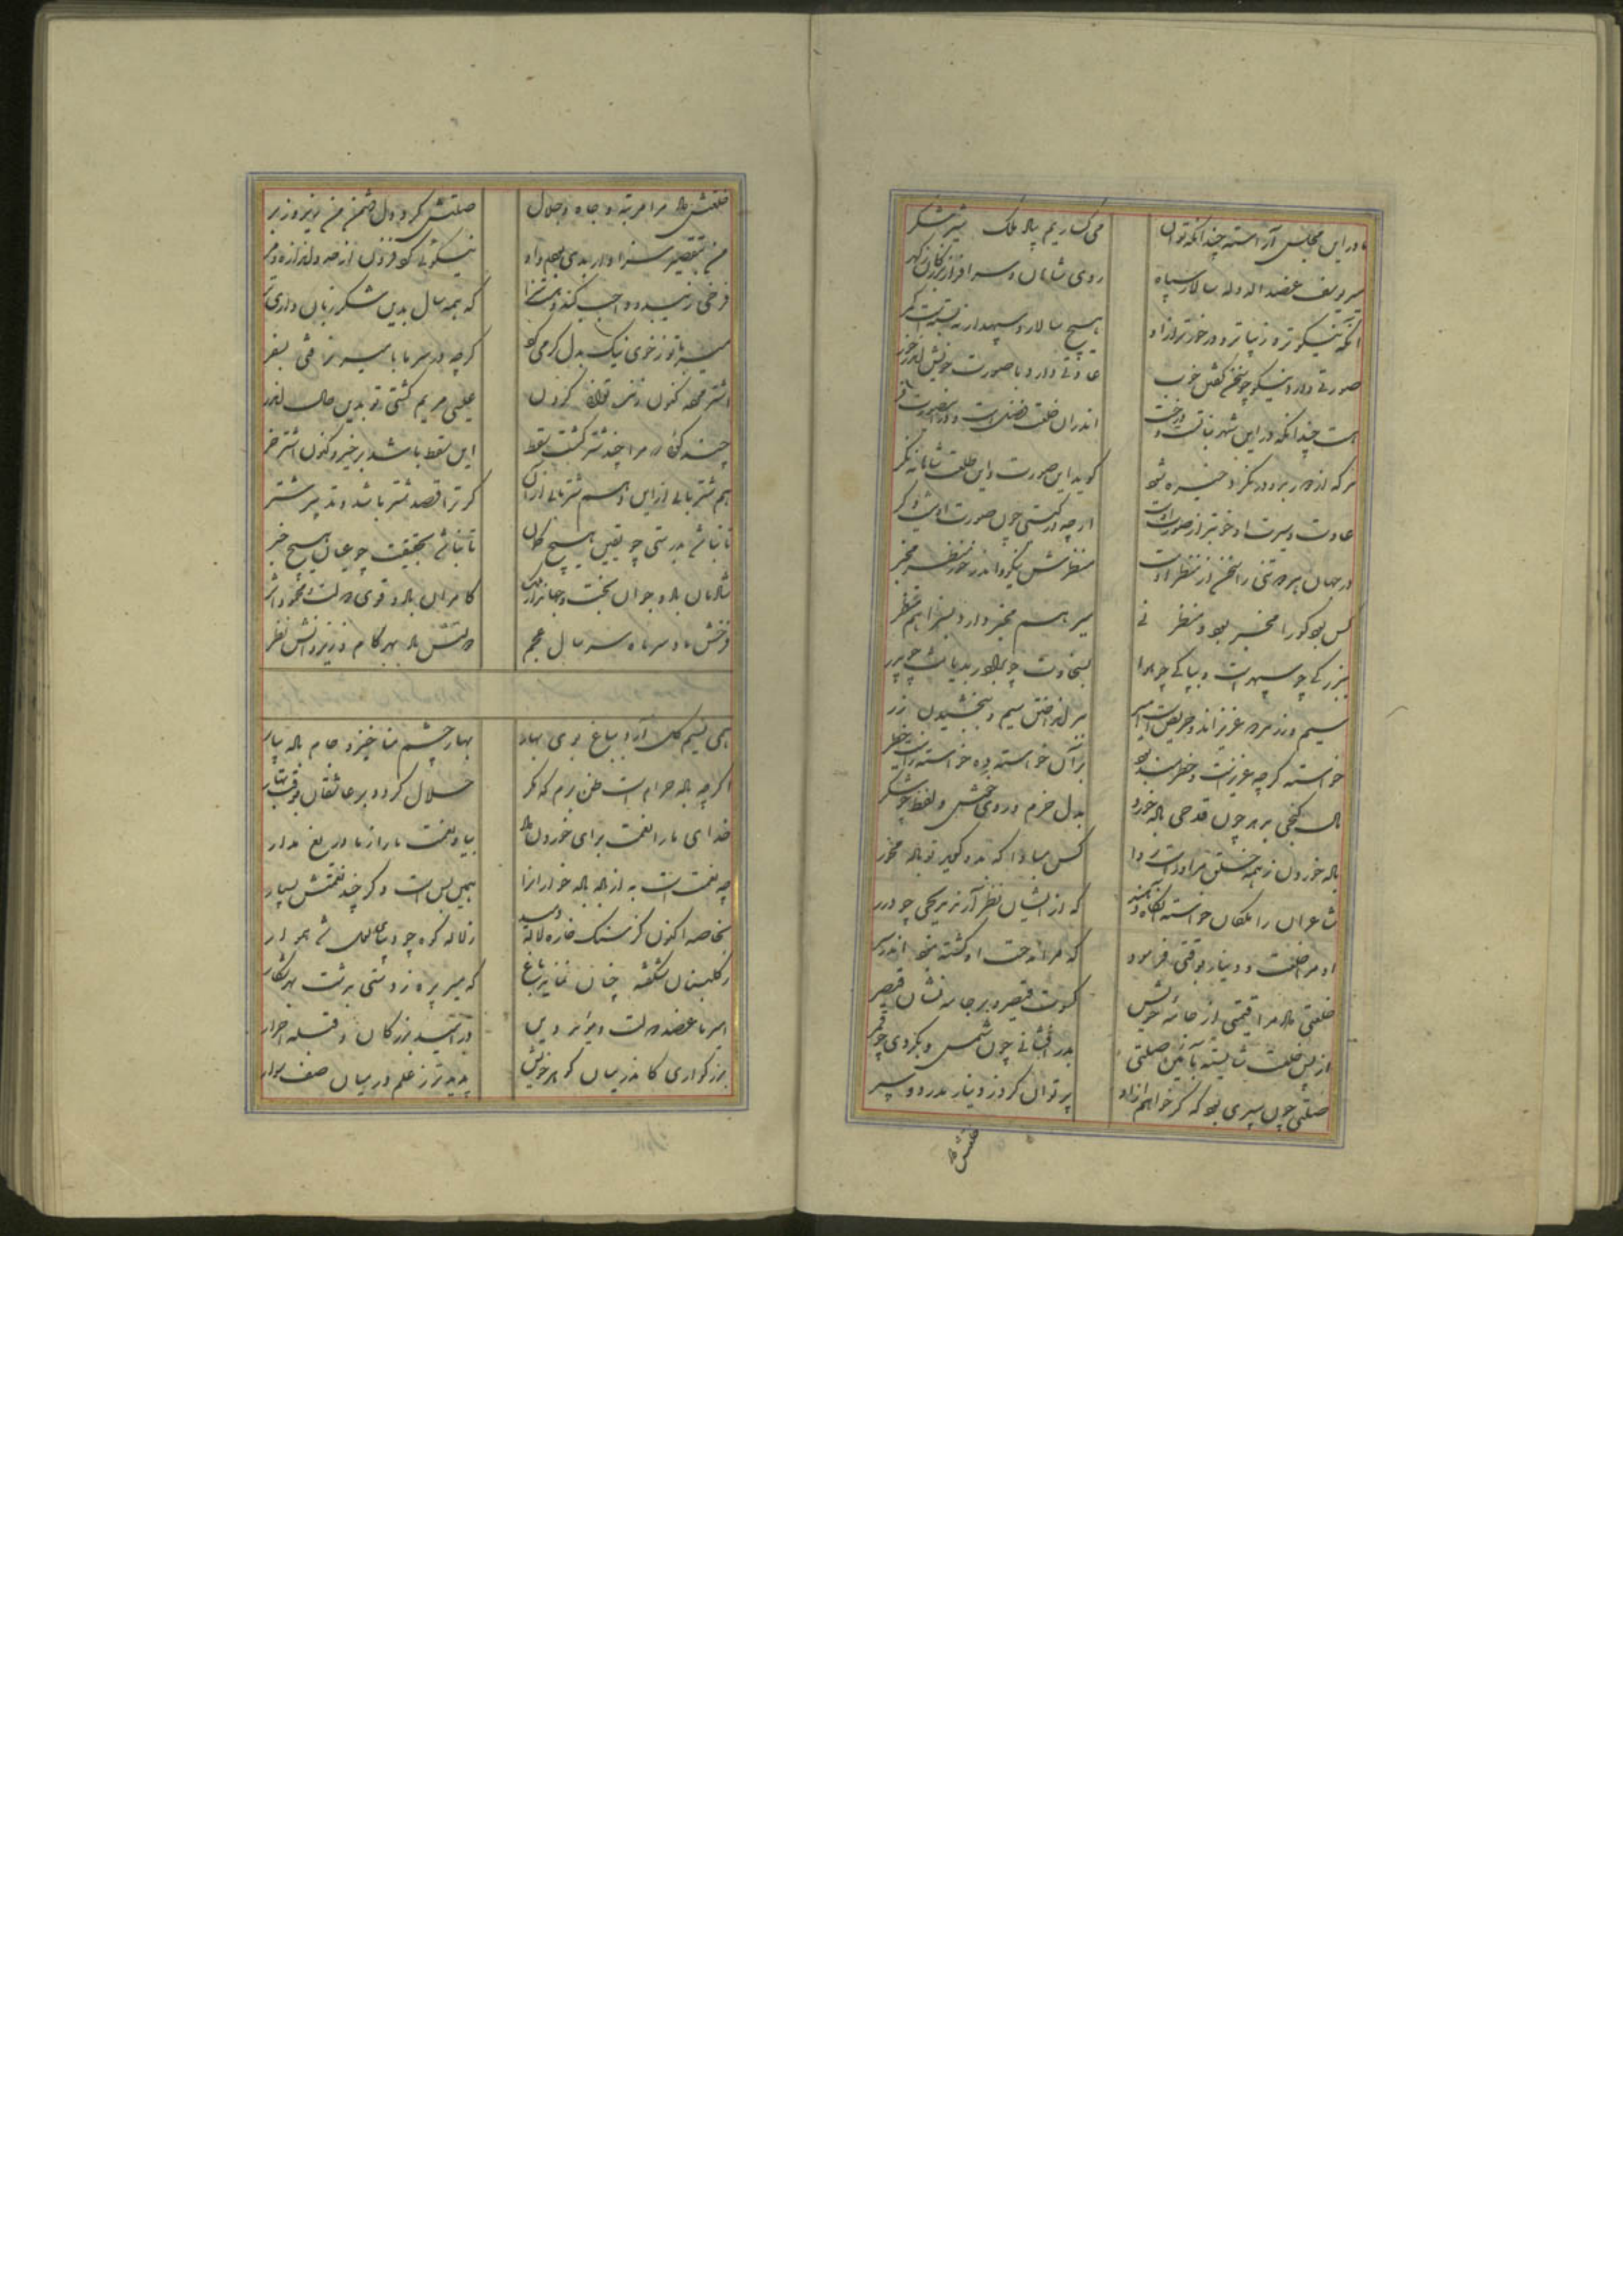 ما در این مجلس آراسته چندانکه توان می گساریم بیاد ملک شیر شکر
میر یوسف عضد الدوله سالار سپاه روی شاهان و سر افراز بزرگان گهر
آنکه نیکوتر و زیباتر و در خورتر ازاو هیچ سالار و سپهدار نبسته است کمر
صورتی دارد نیکو چو سخن گفتن خوب عادتی دارد با صورت خویش اندر خور
هست چندانکه در این شهر نباتست و درخت اندران خلقت فضلست و در آن صورت فر
هر که از دور بدو در نگرد خیره شود گوید این صورت و این طلعت شاهانه نگر
عادت و سیرت او خوبتر از صورت اوست ارچه در گیتی چون صورت او نیست دگر
در جهان هر تنی را سخن از منظر اوست منظرش نیکو و اندر خور منظر مخبر
کس بود کو را مخبر بود و منظر نی میر هم مخبر دارد بسزا هم منظر
ببزرگی چو سپهر است و بپاکی چو هوا بسخاوت چو بدریاست چو بر
سیم و زر عزیز اند و حریص است امیر بر انداختن سیم و ببخشیدن زر
خواسته گرچه عزیزست و خطرمند بود بر آن خواسته ده خواسته را نیست خطر
بدهد چون قدحی باده خورد بدل خرم و روی خوش و لفظ چو شکر
باده خوردن ز همه خلق مر او راست روا کس مبادا که بدو گوید تو باده مخور
شاعران را ملکان خواسته آنگاه دهند که از ایشان نظر آرند بریکی چو درر
او مرا خلعت و دینار بوقتی فرمود که مرا مدحت او گشته نبود اندر سر
خلعتی داد مرا قیمتی از جامه خویش کسوت قیصر و بر جامه نشان قیصر
از پس خلعت شایسته بآئین صلتی بدرفشانی چون شمس و بگردی چو قمر
صلتی چون سپری بود که گر خواهم از او پر توان کرد ز دینار مدور دو سپر
خلعتش داد مرا مرتبه و جاه و جلال صلتش کرد دل دشمن من زیر و زبر
من بتقصیر سزاوار بدی بودم و او نیکوئی کرد فزون از حد و اندازه و مر
فرخی زیبد و واجب کند و هست سزا که همه سال بدین شکر زبان داری تر
میر با تو ز خوی نیک بدل گرمی کرد گرچه در سرما با میر نرفتی بسفر
اشتر کنون توانی کردن عیسی مریم گشتی تو بدین حال اندر
چند گوئی که مرا چند شتر گشت سقط این سقط باشد برخیز و کنون اشتر خر
هم شتر یابی از این و هم شتر یابی از آن گر ترا قصد شتر باشد و تدبیر شتر
تا نباشد بدرستی چو یقین هیچ گمان تا نباشد بحقیقت چو عیان هیچ خبر
شادمان باد و جوان بخت و جهاندار ملک کامران باد و قوی دولت و محمود اثر
فرخش باد سر ماه سر سال عجم دولتش باد بهر کام و ز یزدانش نظر
همی نسیم گل آرد بباغ بوی بهار بهار چشم منا خیز و جام باده بیار
اگرچه باده حرام است ظن برم که مگر حلال گردد بر عاشقان بوقت بهار
خدای ما را نعمت برای خوردن داد بیا و نعمت ما را ز ما دریغ مدار
چه نعمت است به از باده باده خواران را همین بس است و گر چند نعمتش بسیار
بخاصه اکنون کز سنگ خاره لاله دمید ز لاله کوه چو دیبای لعل شد هموار
ز گلبنان شکفته چنان نماید باغ که میر پره زدستی بدشت بهر شکار
امیر ما عضد دولت و مؤید دین در امید بزرگان و قبله احرار
بزرگواری کاندر میان گوهر خویش پدیدتر ز علم در میان صف سوار
خلعتش داد